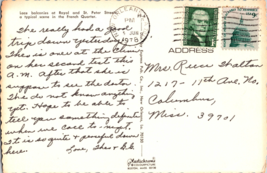 lace balconies at Royal and St. Peter Streets,
a typical scene in the French Quarter.
She really had a good
trip down yesterday.
She is one at the Clinic
on her second test this
A.M. After that she is
suppose to see the doctor.
She do not know anything
yet. Hope to be able to
tell you something definite
when we
It is so quite & peaceful down
here.
Love,
PM
1978
ADDRESS
Mrs. Reece Shelton
1217-11th Ave. No.
Columbus,
Miss. 39701